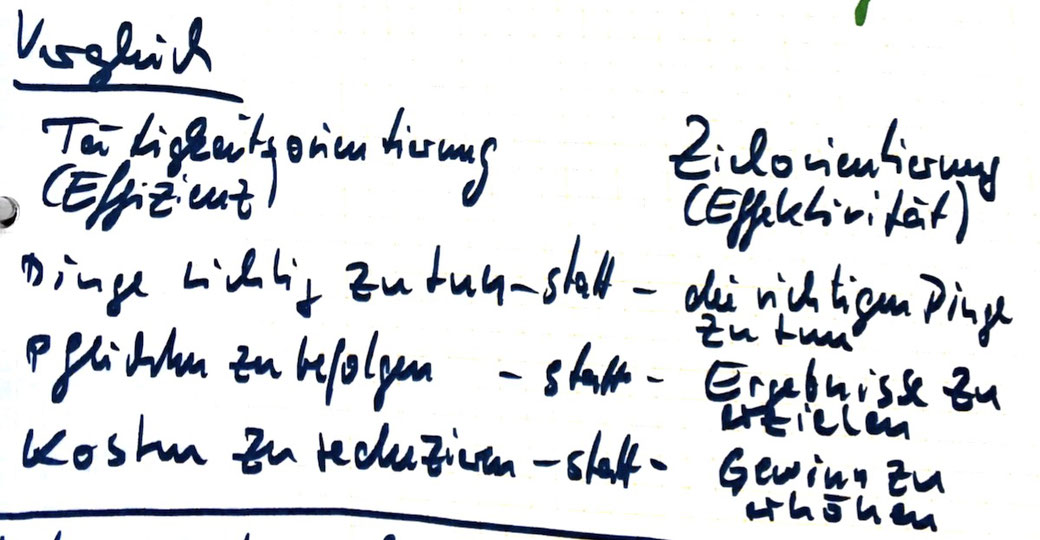 Vergleich
Tätigkeitsorientierung Zielorientierung
(Effizienz) (Effektivität)
Dinge richtig zu tun - statt - die richtigen Dinge
zu tun
Pflichten zu befolgen - statt - Ergebnisse zu
erzielen
Kosten zu reduzieren - statt - Gewinn zu
erhöhen